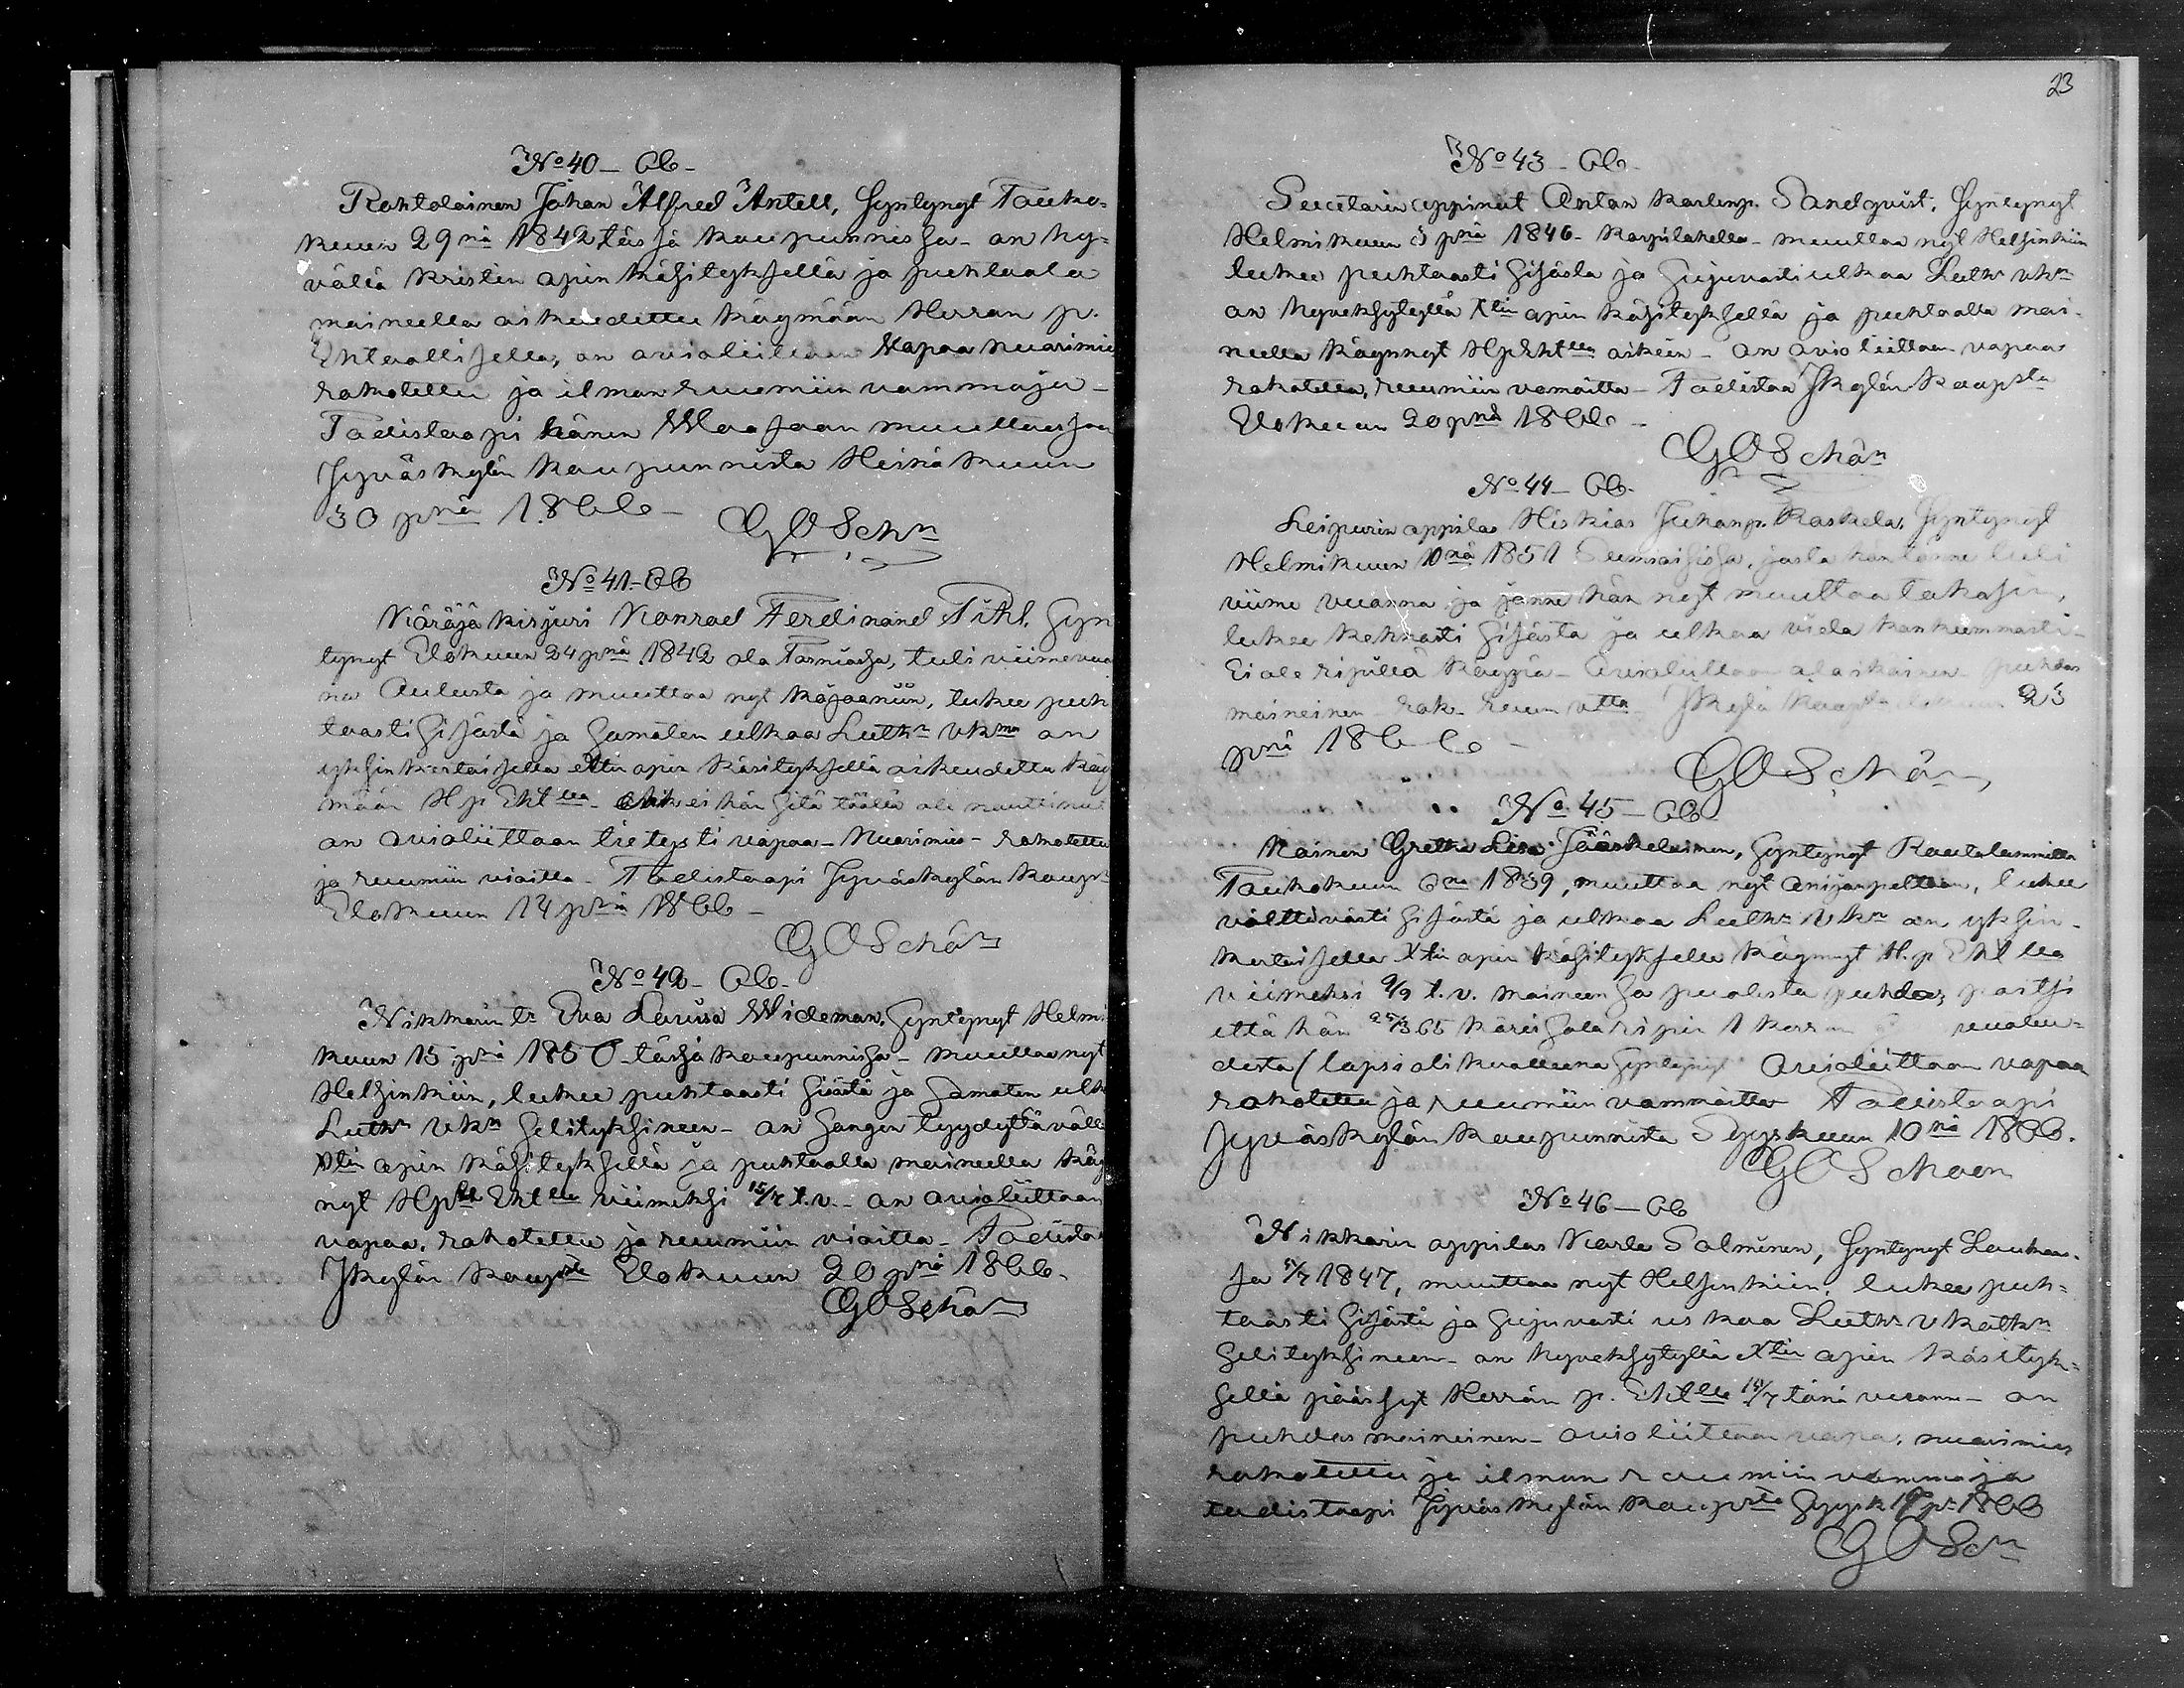 No 40 - 66 -
Rohtolainen Johan Alfred Antell, syntynyt Touko-
kuun 29nä 1842 tässä kaupunnissa - on hy-
vällä kristin opin käsityksellä ja puhtaala
maineella oikeudettu käymään Herran p.
Ehtoollisella, on avioliittoon Vapaa nuorimies
rokotettu ja ilman ruumiin vammoja -
Todistaapi hänen Waasaan muuttaessaan
Jyväskylän kaupunnista Heinäkuun
30 pnä 1866 -
GOSchn
No 41 - 66
Käräjä kirjuri Konrad Ferdinand Pihl. Syn
tynyt Elokuun 24 pnä 1842 ala Torniossa, tuli viimevuo
na Oulusta ja muuttaa nyt Kajaaniin, lukee puh
taasti sisästä ja samaten ulkoa Luthn vkmon
yksinkertaisella Xtin opin käsityksellä oikeudettu käy
mään H p Ehtlla - ehk ei hän sitä täällä ole nauttinut
on avioliittoon tietysti vapaa - Nuorimies - rokotettu
ja ruumiin viaitta - Todistaapi Jyväskylän Kaupsta
Elokuun 14 pnä 1866 -
GOSchön
No 42 - 66 -
Nikkarin tr Eva Lovisa Wideman, syntynyt Helmi
kuun 15 pnä 1850 tässä kaupunnissa - muuttaa nyt
Helsinkiin, lukee puhtaasti sisästä ja samaten ulk
Luthn vkn selityksineen - on sangen tyydyttävällä
Xtin opin käsityksellä ja puhtaalla maineella käy
nyt Hpllä Ehtlla viimeksi 15/7 t.v. - on avioliittoon
vapaa, rokotettu ja ruumiin viaitta - Todistaa
Jkylän kaupsta Elokuun 20 pnä 1866.
GOSchön
23
No 43 - 66 -
oppinut Anton Karlinp. Sandqvist, syntynyt
Helmikuun 3 pnä 1846 - Korpilahella - muuttaa nyt Helsinkiin
lukee puhtaasti sisästä ja sujuvasti ulkoa Luthn vkn
on hyveksytyllä Xtin opin käsityksellä ja puhtaalla mai-
neella käynnyt HpEhtlla oikein - on avioliittoon vapaa
rokotettu, ruumiin vamoitta - Todistaa Jkylän kaupsta
Elokuun 20 pnä 1866 -
GOSchön
No 44 - 66 -
Leipurin oppilas Hiskias Juhanp. Kaskela, syntynyt
Helmikuun 10nä 1851 Sumiaisissa, josta hän tänne tuli
viime vuonna ja jonne hän nyt muuttaa takasin,
lukee kehnosti sisästä ja ulkoa vielä kankeammasti -
Ei ole ripillä käypä - Avioliittoon alaikäinen - puhdas
maineinen - rok - ruum vtta - Jkylä kaupsta 23
pnä 1866 -
GOSchön
No 45 - 66
Nainen Gretha Lisa Jääskeläinen, syntynyt Rautalammilla
Toukokuun 6na 1839, muuttaa nyt Anijanpeltoon, lukee
välttävästi sisästä ja ulkoa Luthn vkn on yksin-
kertaisella Xtin opin käsityksellä käynnyt H.p Ehtlla
viimeksi 9/9 t.v. maineensa puolesta puhdas, paitsi
että hän 65 kärsi salaripin 1 kerran
desta (lapsi oli kuolleena syntynyt Avioliittoon vapaa
rokotettu ja ruumiin vammoitta Todistaapi
Jyväskylän kaupunnista Syyskuun 10nä 1866.
GOSchoen
No 46 - 66
Nikkarin oppilas Karle Salminen, syntynyt Laukaa-
sa 5/7 1847, muuttaa nyt Helsinkiin. lukee puh-
taasti sisästä ja sujuvasti uskoa Luthn vkatkn
selityksineen - on hyveksytyllä Xtin opin käsityk-
sellä päässyt Herran p. Ehtlle 15/7 tänä vuonna - on
puhdas maineinen - avioliittoon vapa, nuorimies
rokotettu ja ilman ruumiin vammoja
todistaapi Jyväskylän kaupsta Syysk 19 p. 1866
GOSchn